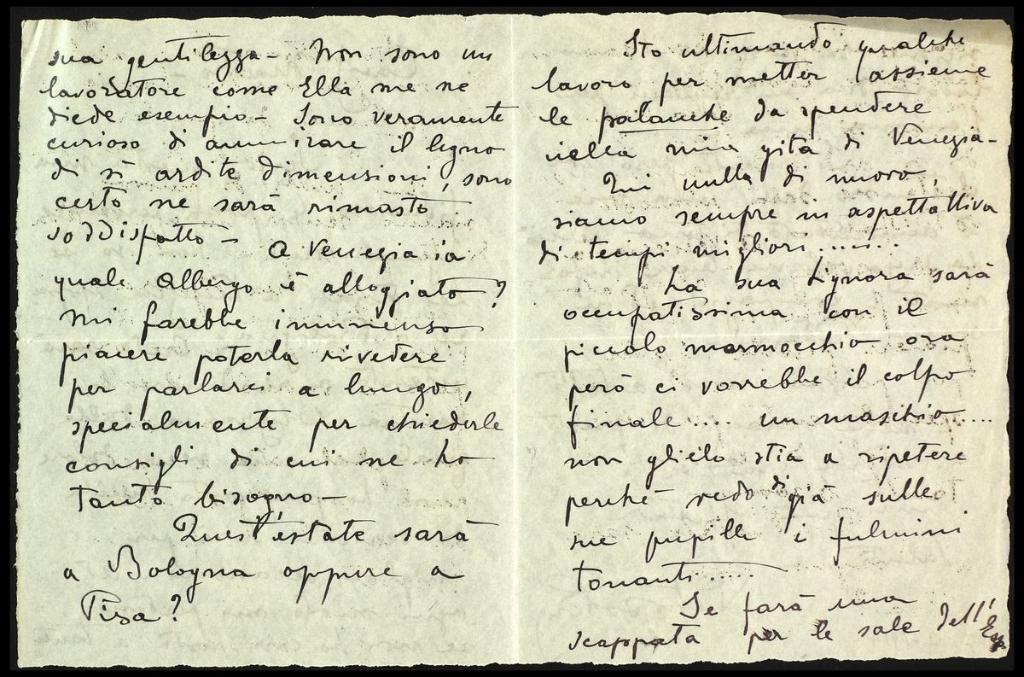 sua gentilezza - Non sono un
lavoratore come Ella me ne
diede esempio - Sono veramente
curioso di ammirare il legno
di sì ardite dimensioni, sono
certo ne sarà rimasto
soddisfatto - A Venezia in
quale Albergo è alloggiato?
Mi farebbe immenso
piacere poterla rivedere
per parlarci a lungo,
specialmente per chiederle
consigli di cui ne ho
tanto bisogno -
Quest'estate sarà
a Bologna oppure a
Pisa?
Sto ultimando qualche
lavoro per metter assieme
le palanche da spendere
nella mia gita di Venezia -
Qui nulla di nuovo,
siamo sempre in aspettativa
di tempi migliori.......
La sua Signora sarà
occupatissima con il
piccolo marmocchio ora
però ci vorrebbe il colpo
finale.... un maschio.....
non glielo stia a ripetere
perchè vedo di già sulle
sue pupille i fulmini
tonanti.....
Se farà una
scappata per le sale dell'